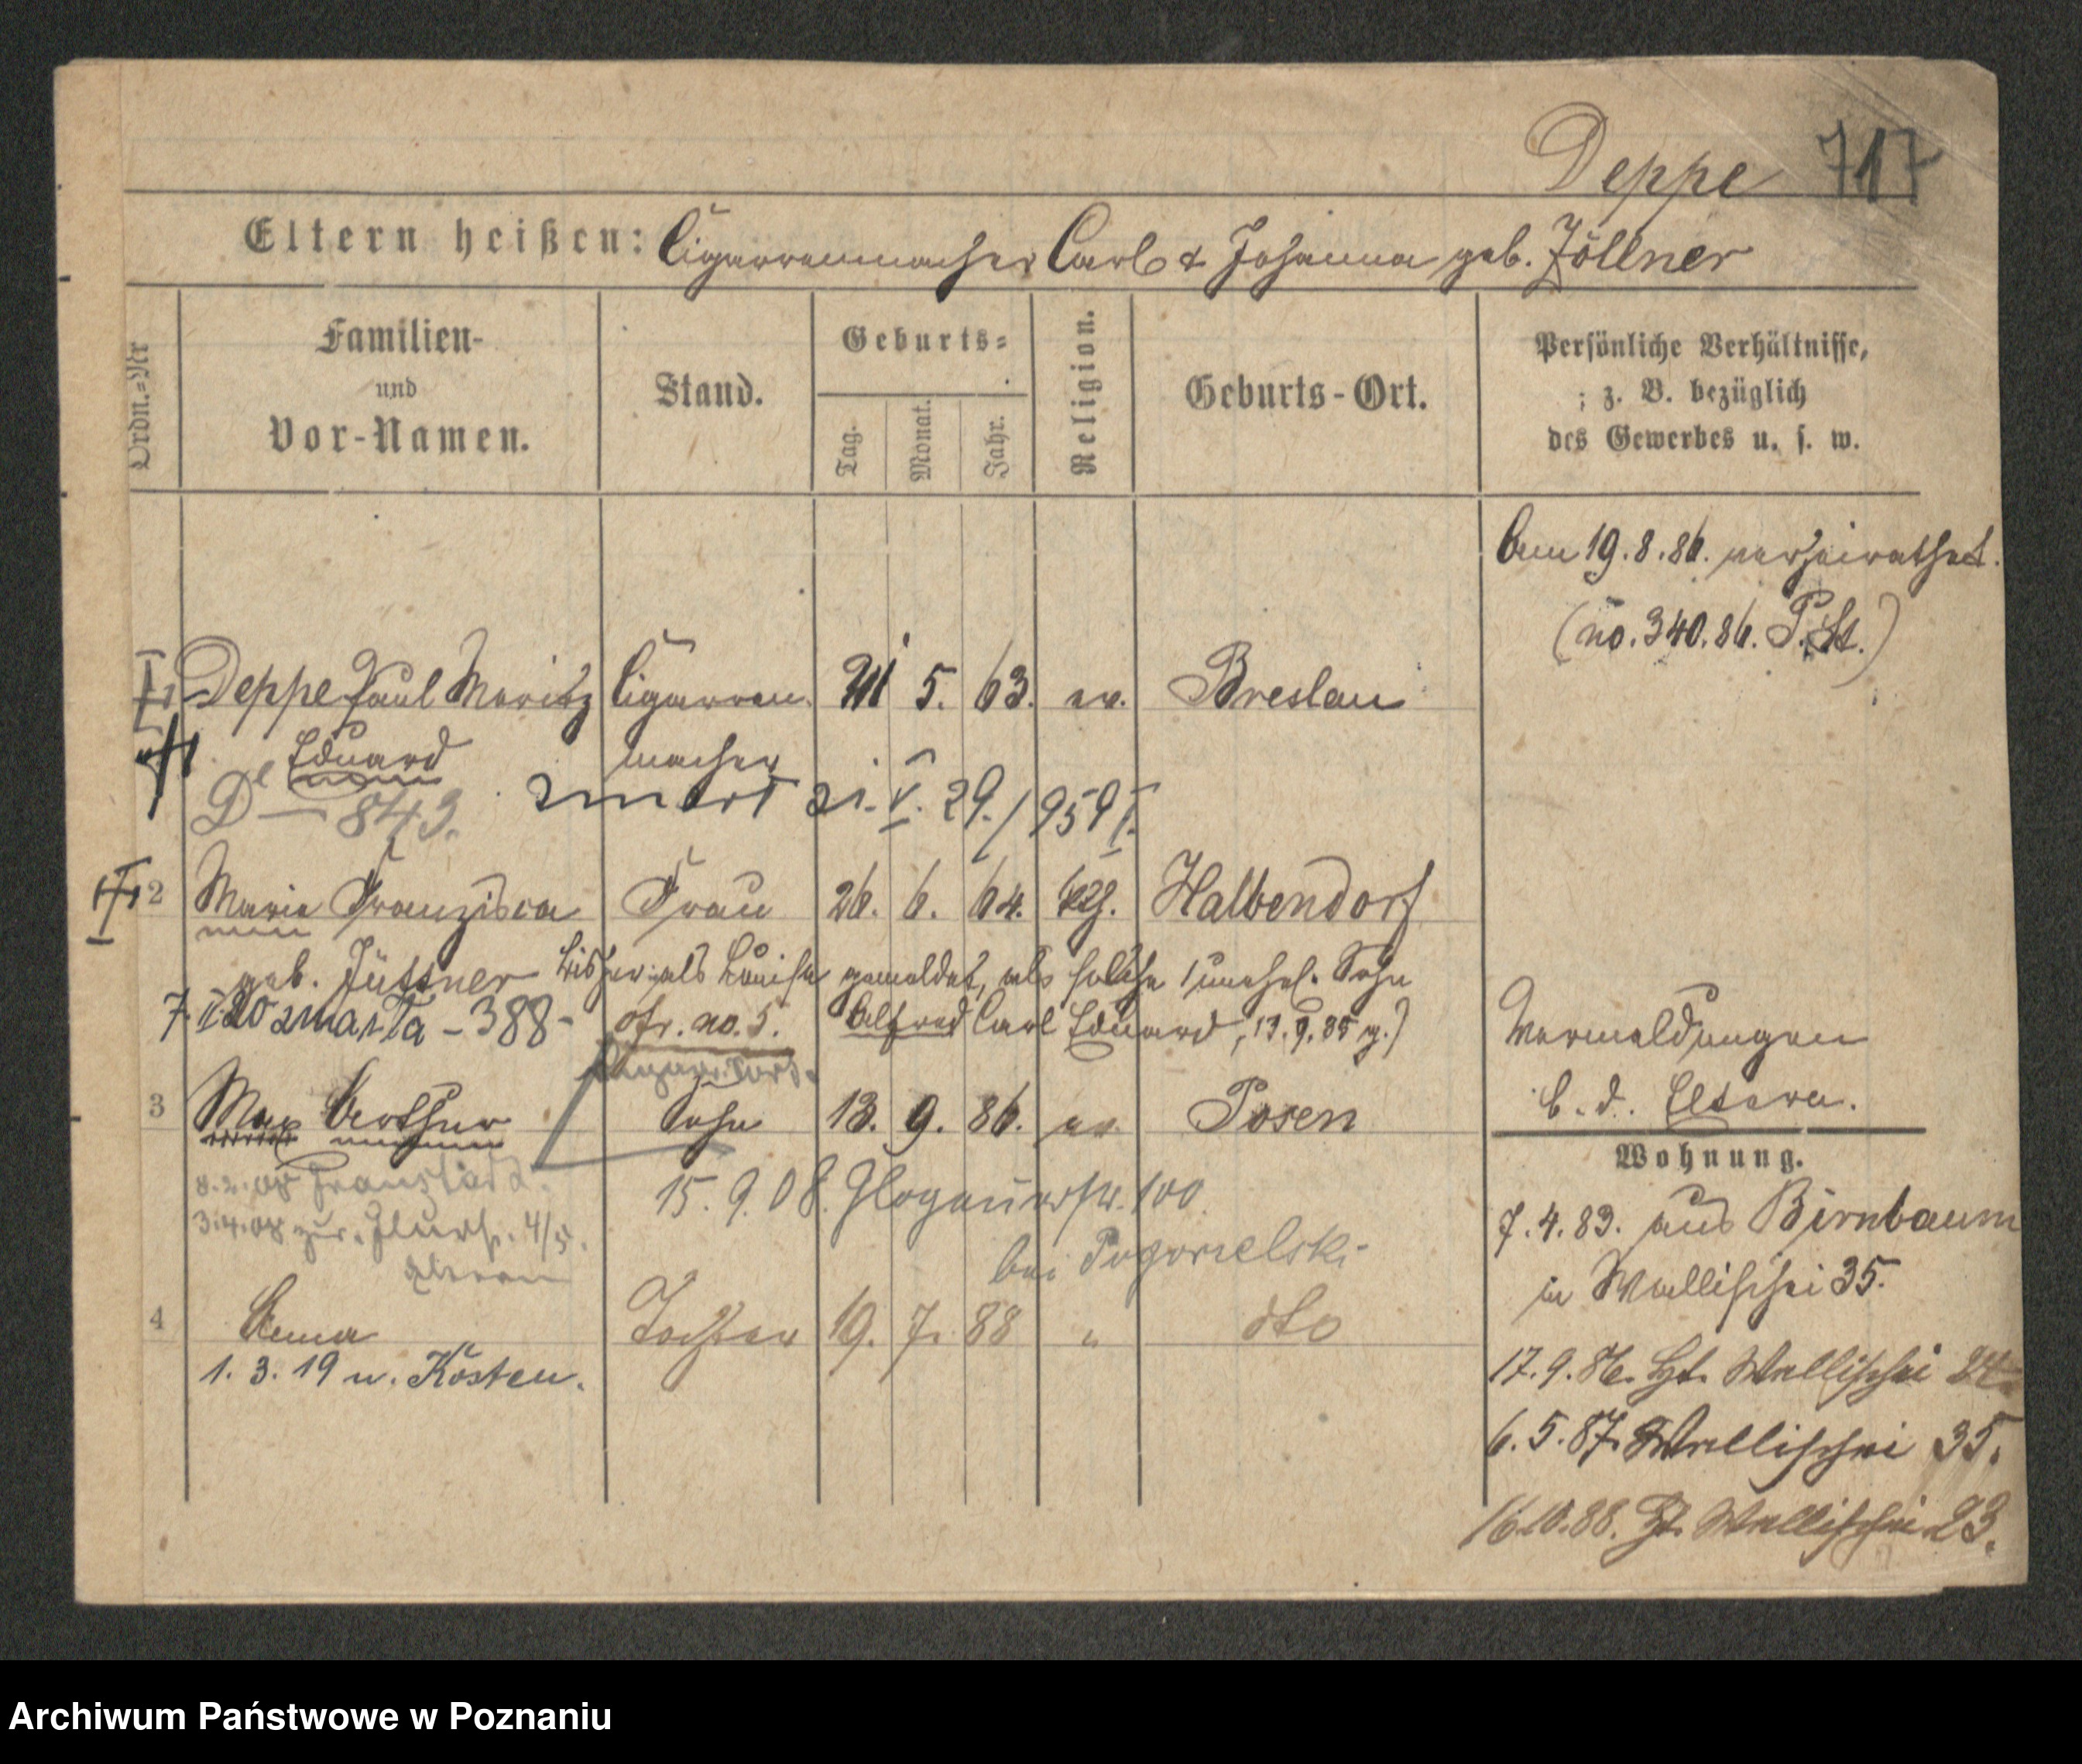 Deppe 717
Eltern heißen: Cigarrenmacher Carl & Johanna geb. Zöllner
Ordn.-Nr
Familien-
und
Vor-Namen.
Stand.
Geburts-
Tag.
Monat.
Jahr.
Religion.
Geburts-Ort.
Persönliche Verhältnisse,
z. B. bezüglich
des Gewerbes u. s. w.
Am 19.8.86. verheirathet.
(No. 340.86. P. St.)
1 Deppe Paul Moritz Cigarren- 5. 63. ev. Breslau
Eduard macher
D — 843. zmarł 21.V.29./959
2 Maria Franzisca Frau 26. 6. 64. Halbendorf
geb. Jüttner bisher als Louise gemeldet, als solche 1 unehel. Sohn
7. 20 zmarła – 388 – cfr. no. 5. Alfred Carl Eduard, 13.9.85 g.)
3 Max Arthur Sohn 13. 9. 86. ev. Posen
8.2.08 Fraustadt.
15.9.08. Glogauerstr. 100.
3.4.08 zur. 4/5.
bei Pogorzelski
Eltern
4 Anna Tochter 19. 7. 88 " dto
1.3.19 n. Kosten.
Vermeldungen
b. d. Eltern.
Wohnung.
7.4.83. aus Birnbaum
in Wallischei 35.
17.9.86. Wallischei
6.5.87. Wallischei 35.
16.10.88. Wallischei 23.
Archiwum Państwowe w Poznaniu